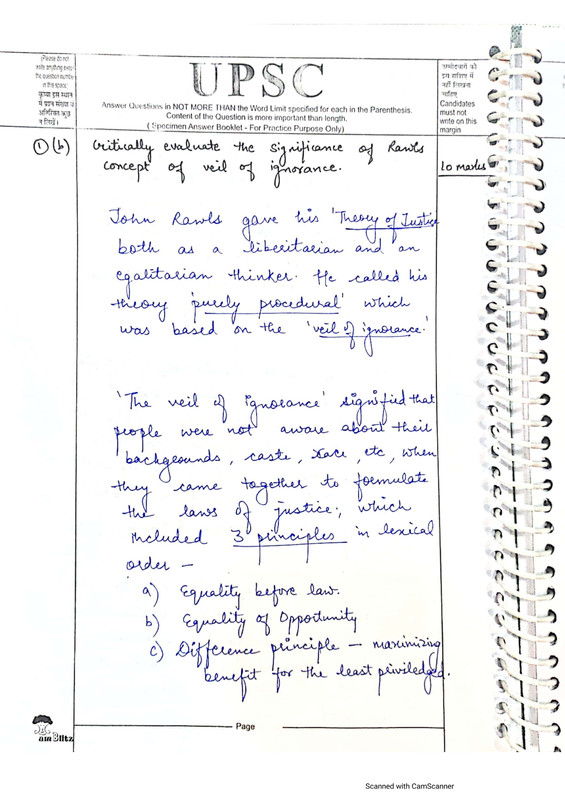 (Please do not
write anything except
the question number
in this space)
कृपया इस स्थान
में प्रश्न संख्या के
अतिरिक्त कुछ
न लिखें।
UPSC
Answer Questions in NOT MORE THAN the Word Limit specified for each in the Parenthesis.
Content of the Question is more important than length.
( Specimen Answer Booklet - For Practice Purpose Only)
उम्मीदवारों को
इस हाशिए में
नहीं लिखना
चाहिए
Candidates
must not
write on this
margin
1 (b) Critically evaluate the significance of Rawls
concept of veil of ignorance.
10 marks
John Rawls gave his 'Theory of Justice
both as a liberitarian and an
egalitarian thinker. He called his
theory 'purely procedural' which
was based on the 'veil of ignorance.'
'The veil of ignorance' signified that
people were not aware about their
backgrounds, caste, race, etc, when
they came together to formulate
the laws of justice; which
included 3 principles in lexical
order –
a) Equality before law.
b) Equality of Opportunity
c) Difference principle – maximizing
benefit for the least priviledged.
Page
Scanned with CamScanner